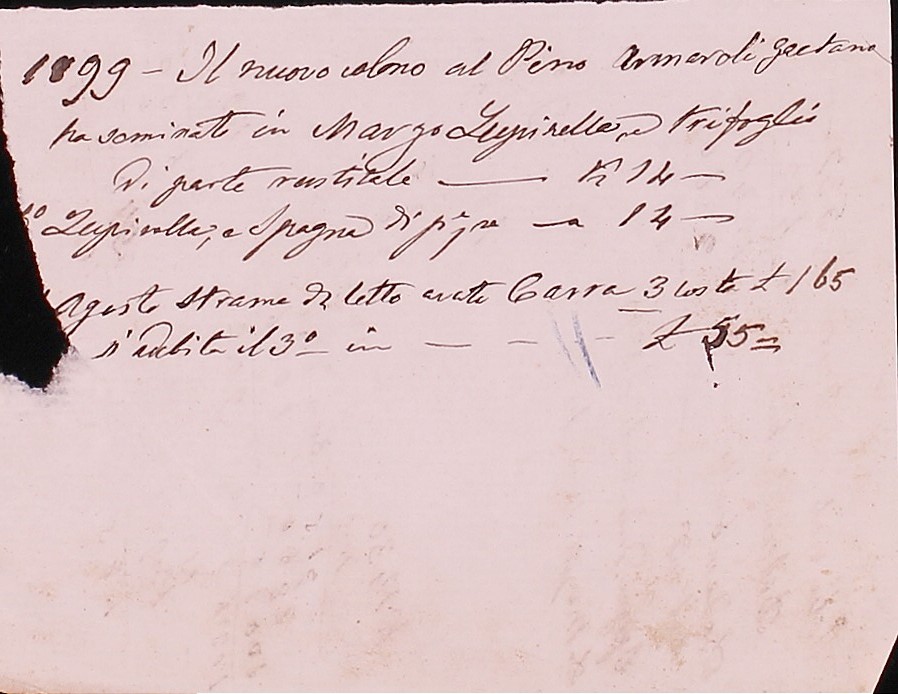 1899 - Il nuovo colono al Pino Armaroli Gaetano
ha seminato in Marzo Lupinella e Trifoglio
di parte rusticale — K 14 —
Lupinella, e Spagna di — a 14 —
Agosto Strame da letto avute Carra 3 costo £ 165
s'addebita il 3º in — — — £ 55=